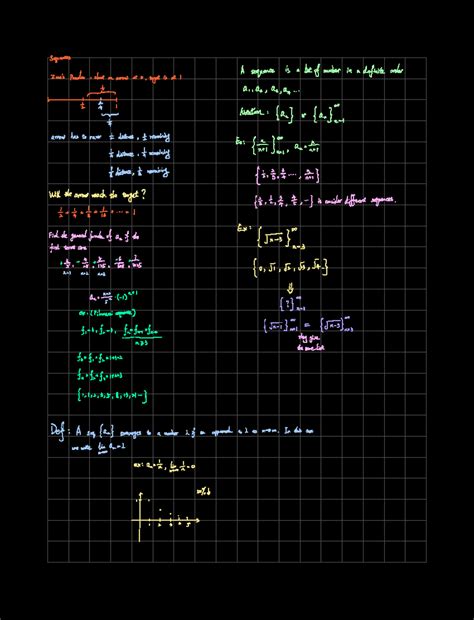 Sequences
Zeno's Paradox : shoot an arrow at 0, target is at 1
1/2
1/4
0 1/2 3/4 1
1/8
arrow has to cover 1/2 distance, 1/2 remaining
1/4 distance, 1/4 remaining
1/8 distance, 1/8 remaining
Will the arrow reach the target?
1/2 + 1/4 + 1/8 + 1/16 + ... = 1
Find the general formula of a_n if the
first terms are:
n=1 n=2 n=3
a_n = n+2/5^n · (-1)^{n+1}
ex: (Fibonacci sequence)
f_1=1, f_2=1, f_n = f_{n-1} + f_{n-2}
n≥3
f_3 = f_2 + f_1 = 1+1 = 2
{1, 1, 2, 3, 5, 8, 13, 21 ...}
A sequence is a list of numbers in a definite order
a_1, a_2, a_3, a_4, ...
Notation: {a_n} or {a_n}_{n=1}^∞
Ex: {n/n+1}_{n=1}^∞, a_n = n/n+1
{1/2, 2/3, 3/4, ..., n/n+1}
is consider different sequences.
Ex: {√n-3}_{n=3}^∞
{0, √1, √2, √3, √4, }
⇓
{?}_{n=1}^∞
{√n-1}_{n=1}^∞ = {√n-3}_{n=3}^∞
they give
the same list
Def: A seq {a_n} converges to a number L if a_n approaches to L as n→∞. In this case
we write lim a_n = L
ex: a_n = 1/n, lim 1/n = 0